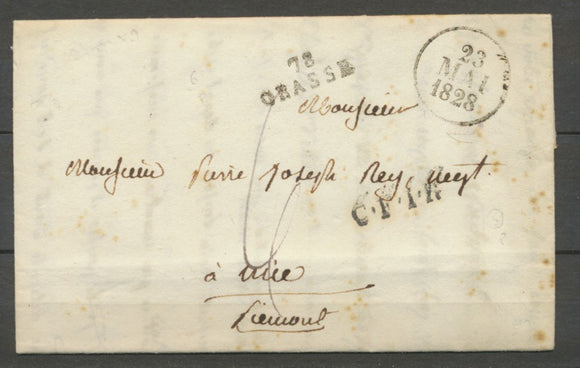 78
GRASSE
23
MAI
1828
Monsieur
Monsieur Pierre Joseph Rey, negt.
C.F.1.R
à nice
piemont